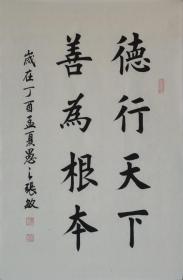 德行天下
善為根本
歲在丁酉孟夏愚之張敏